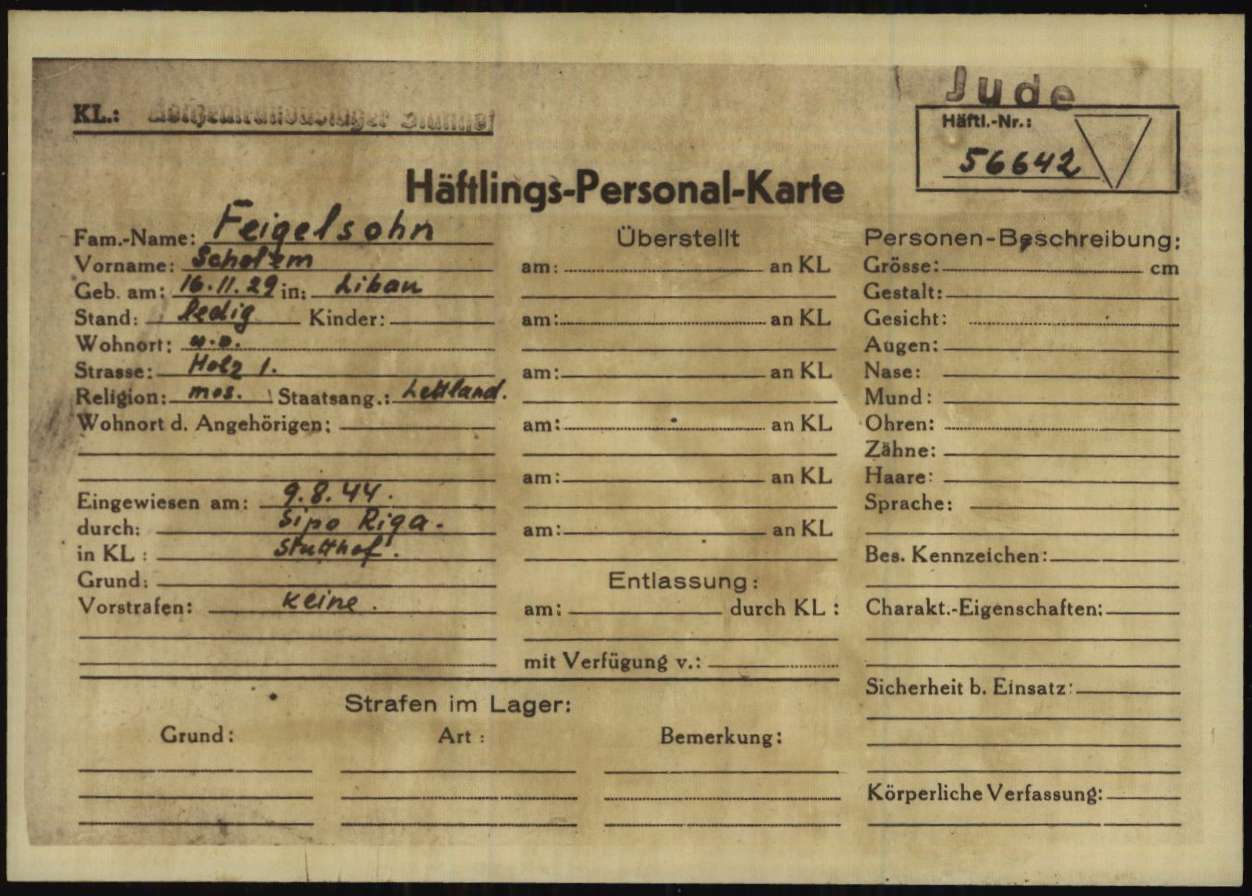 Jude
KL.: Konzentrationslager Stutthof
Häftl.-Nr.:
56642
Häftlings-Personal-Karte
Fam.-Name: Feigelsohn
Vorname: Scholem
Geb. am: 16.11.29 in: Libau
Stand: ledig Kinder:
Wohnort: u.o.
Strasse: Holz 1.
Religion: mos. Staatsang.: Lettland.
Wohnort d. Angehörigen:
Eingewiesen am: 9.8.44.
durch: Sipo Riga.
in KL: Stutthof.
Grund:
Vorstrafen: keine.
Überstellt
am: an KL
am: an KL
am: an KL
am: an KL
am: an KL
am: an KL
Entlassung:
am: durch KL:
mit Verfügung v.:
Personen-Beschreibung:
Grösse: cm
Gestalt:
Gesicht:
Augen:
Nase:
Mund:
Ohren:
Zähne:
Haare:
Sprache:
Bes. Kennzeichen:
Charakt.-Eigenschaften:
Sicherheit b. Einsatz:
Körperliche Verfassung:
Strafen im Lager:
Grund: Art: Bemerkung: